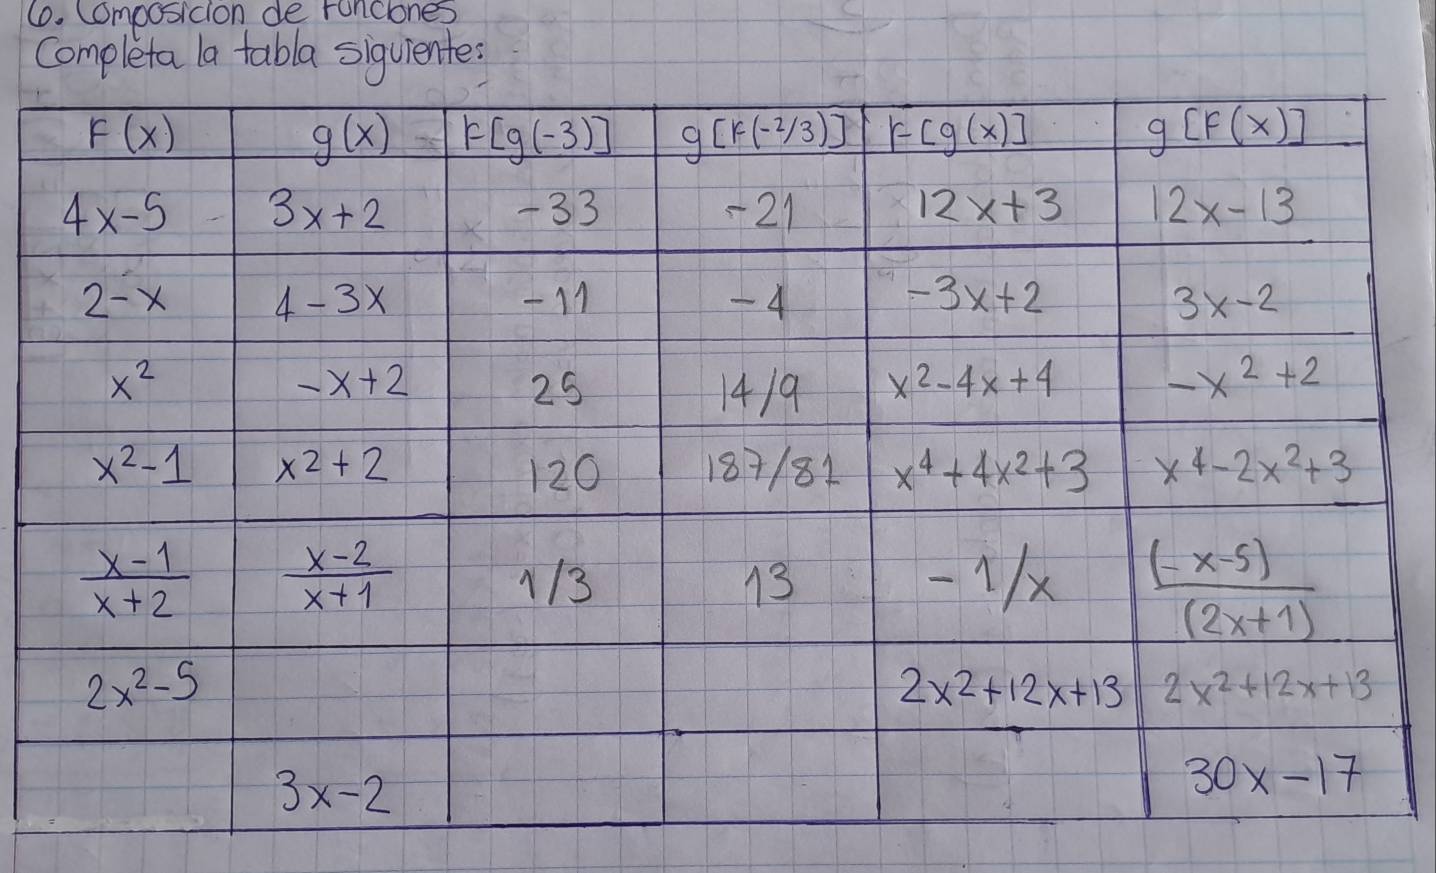 6. Composición de Funciones
Completa la tabla siguiente:
F(x) g(x) F[g(-3)] g[F(-2/3)] F[g(x)] g[F(x)]
4x-5 3x+2 -33 -21 12x+3 12x-13
2-x 4-3x -11 -4 -3x+2 3x-2
x² -x+2 25 14/9 x²-4x+4 -x²+2
x²-1 x²+2 120 187/81 x⁴+4x²+3 x⁴-2x²+3
x-1 x-2 (-x-5)
1/3 13 -1/x
x+2 x+1 (2x+1)
2x²-5 2x²+12x+13 2x²+12x+13
3x-2 30x-17